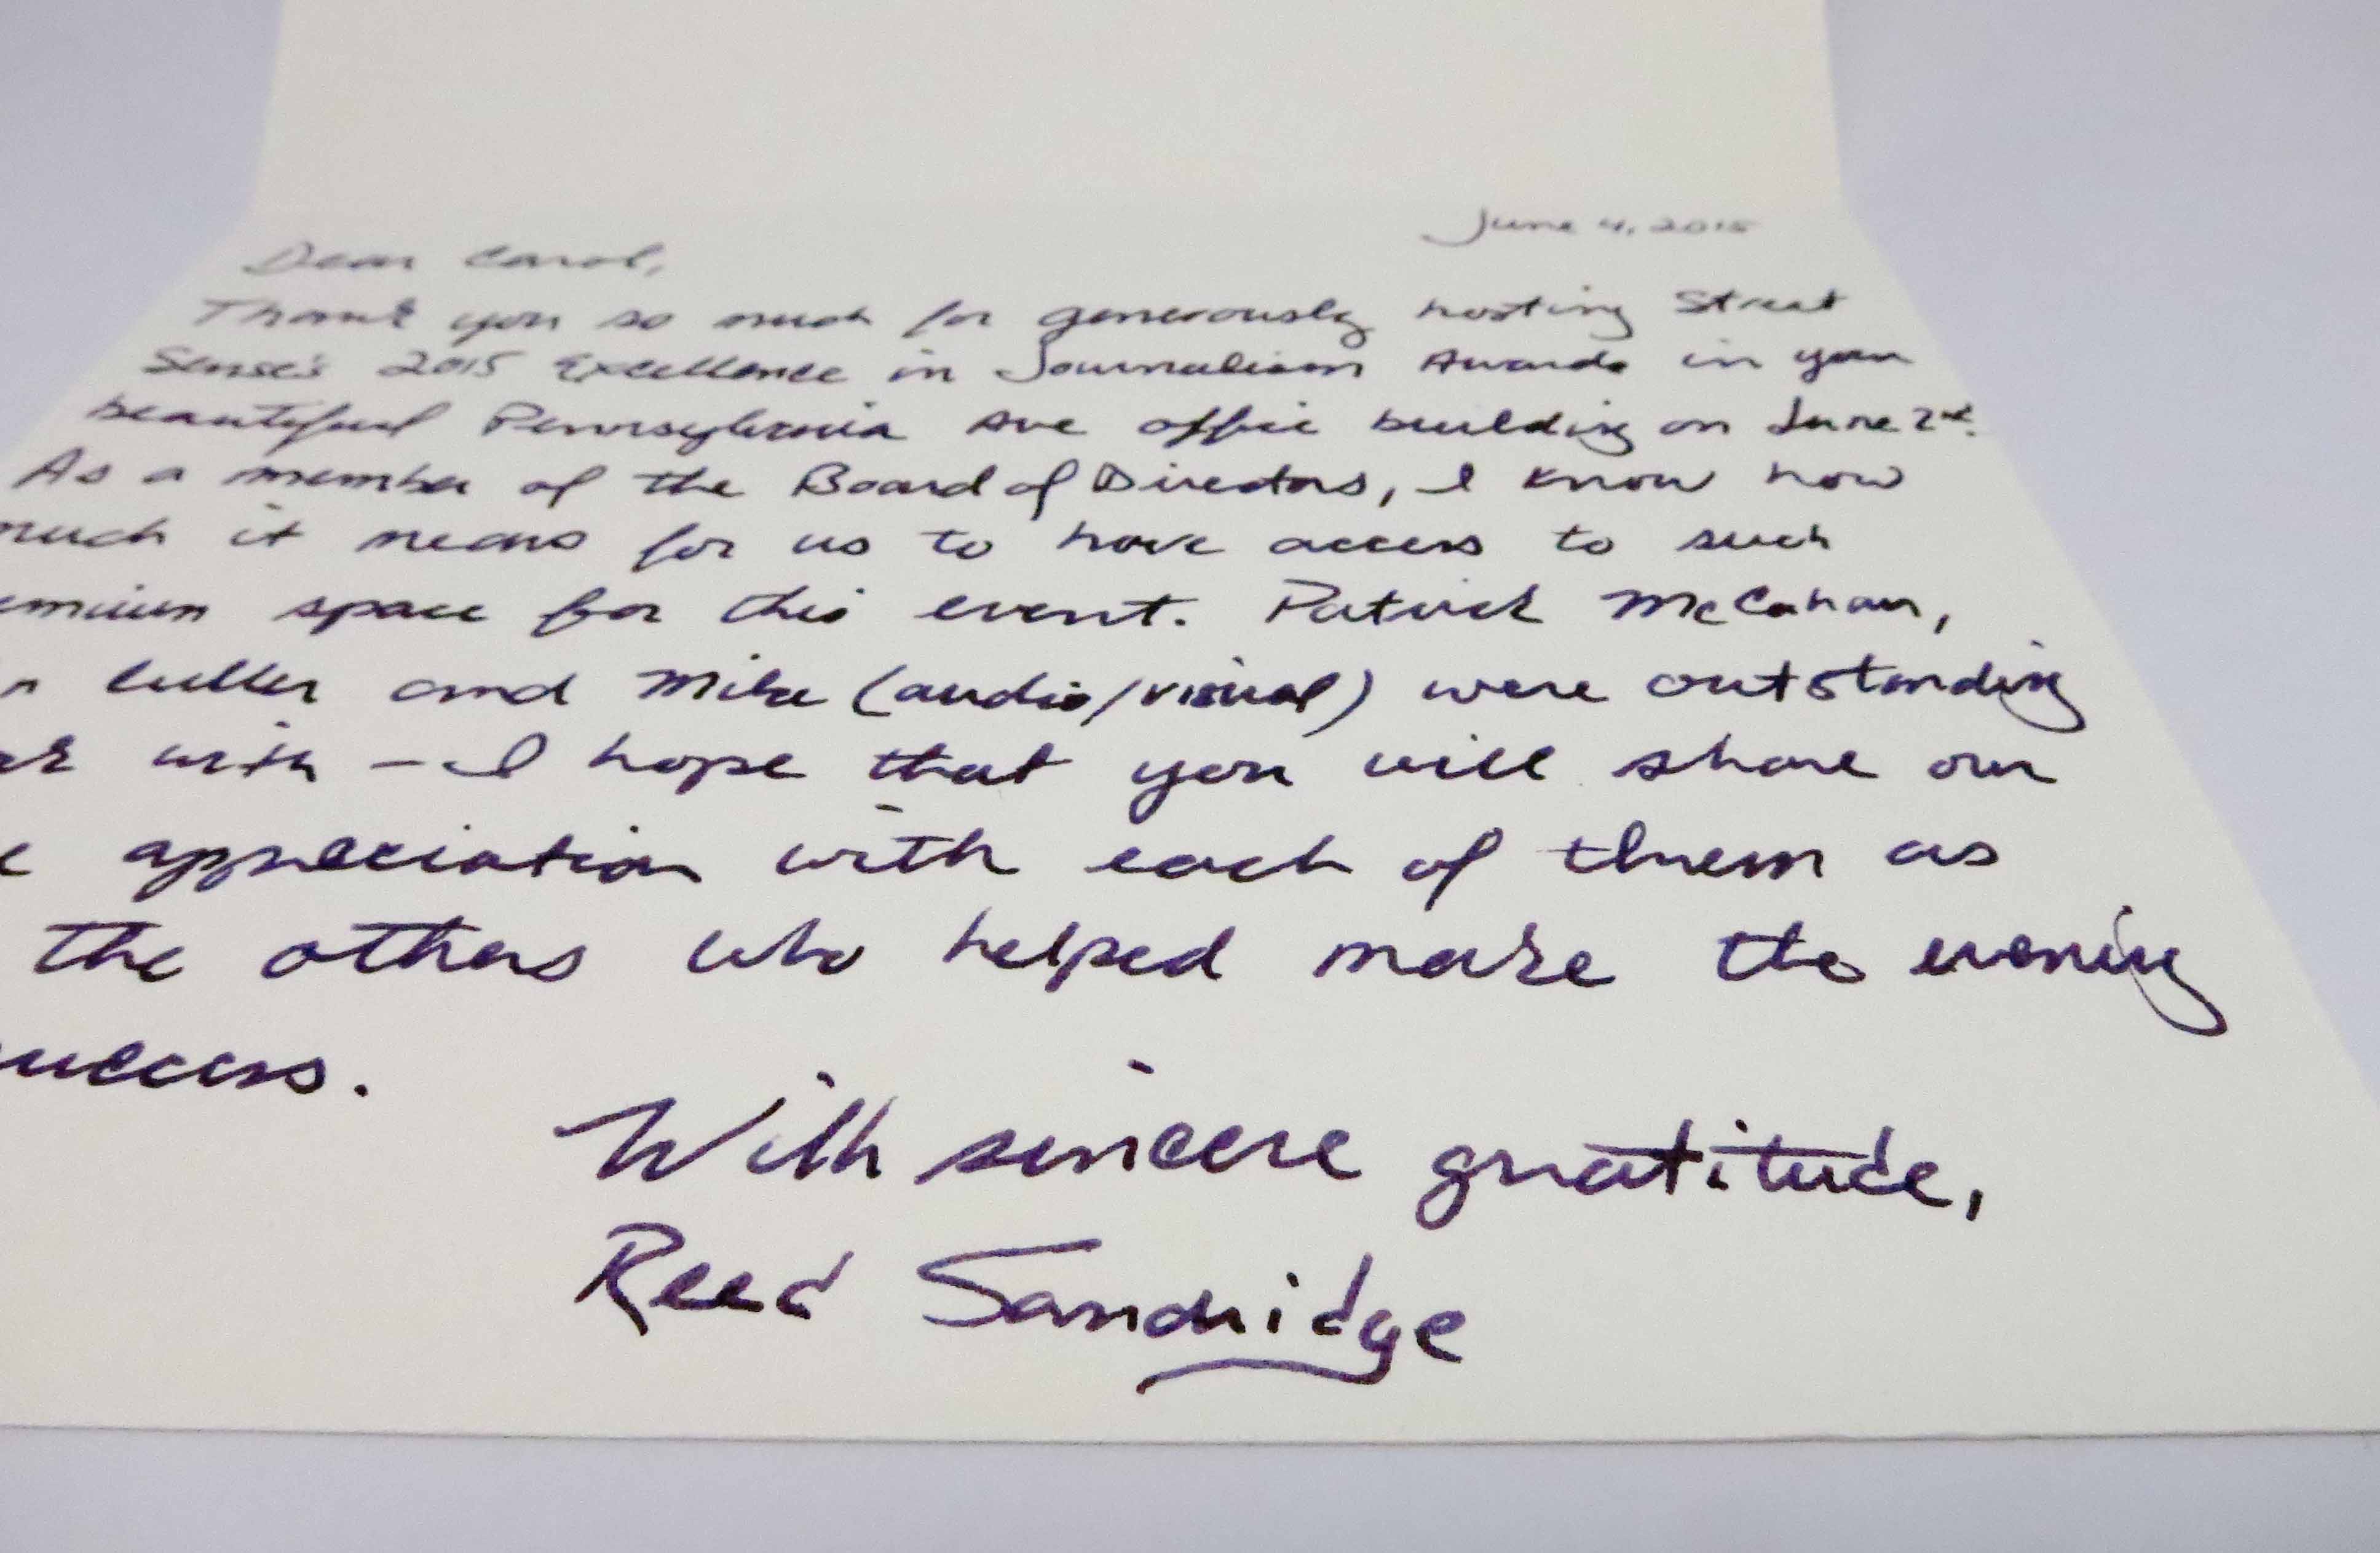 June 4, 2015
Dear Carol,
Thank you so much for generously hosting Street
Sense's 2015 Excellence in Journalism Awards in your
beautiful Pennsylvania Ave office building on June 2nd.
As a member of the Board of Directors, I know how
much it means for us to have access to such
emium space for this event. Patrick McCahan,
and Mike (audio/visual) were outstanding
with - I hope that you will share our
appreciation with each of them as
the others who helped make the evening
uccess.
With sincere gratitude,
Reed Sandridge